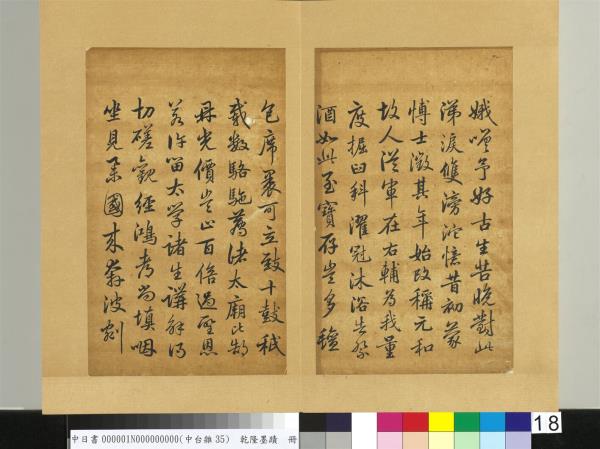 娥嗟予好古生苦晚對此
涕淚雙滂沱憶昔初蒙
博士徵其年始改稱元和
故人從軍在右輔為我量
度掘臼科濯冠沐浴告祭
酒如此至寶存豈多氊
包席裹可立致十鼓秖
載數駱駞薦諸太廟比郜
鼎光價豈止百倍過聖恩
若許留太学諸生講解得
切磋觀經鴻都尚填咽
坐見舉國来奔波剜
中日書000001N000000000(中台雜35) 乾隆墨蹟 冊
18